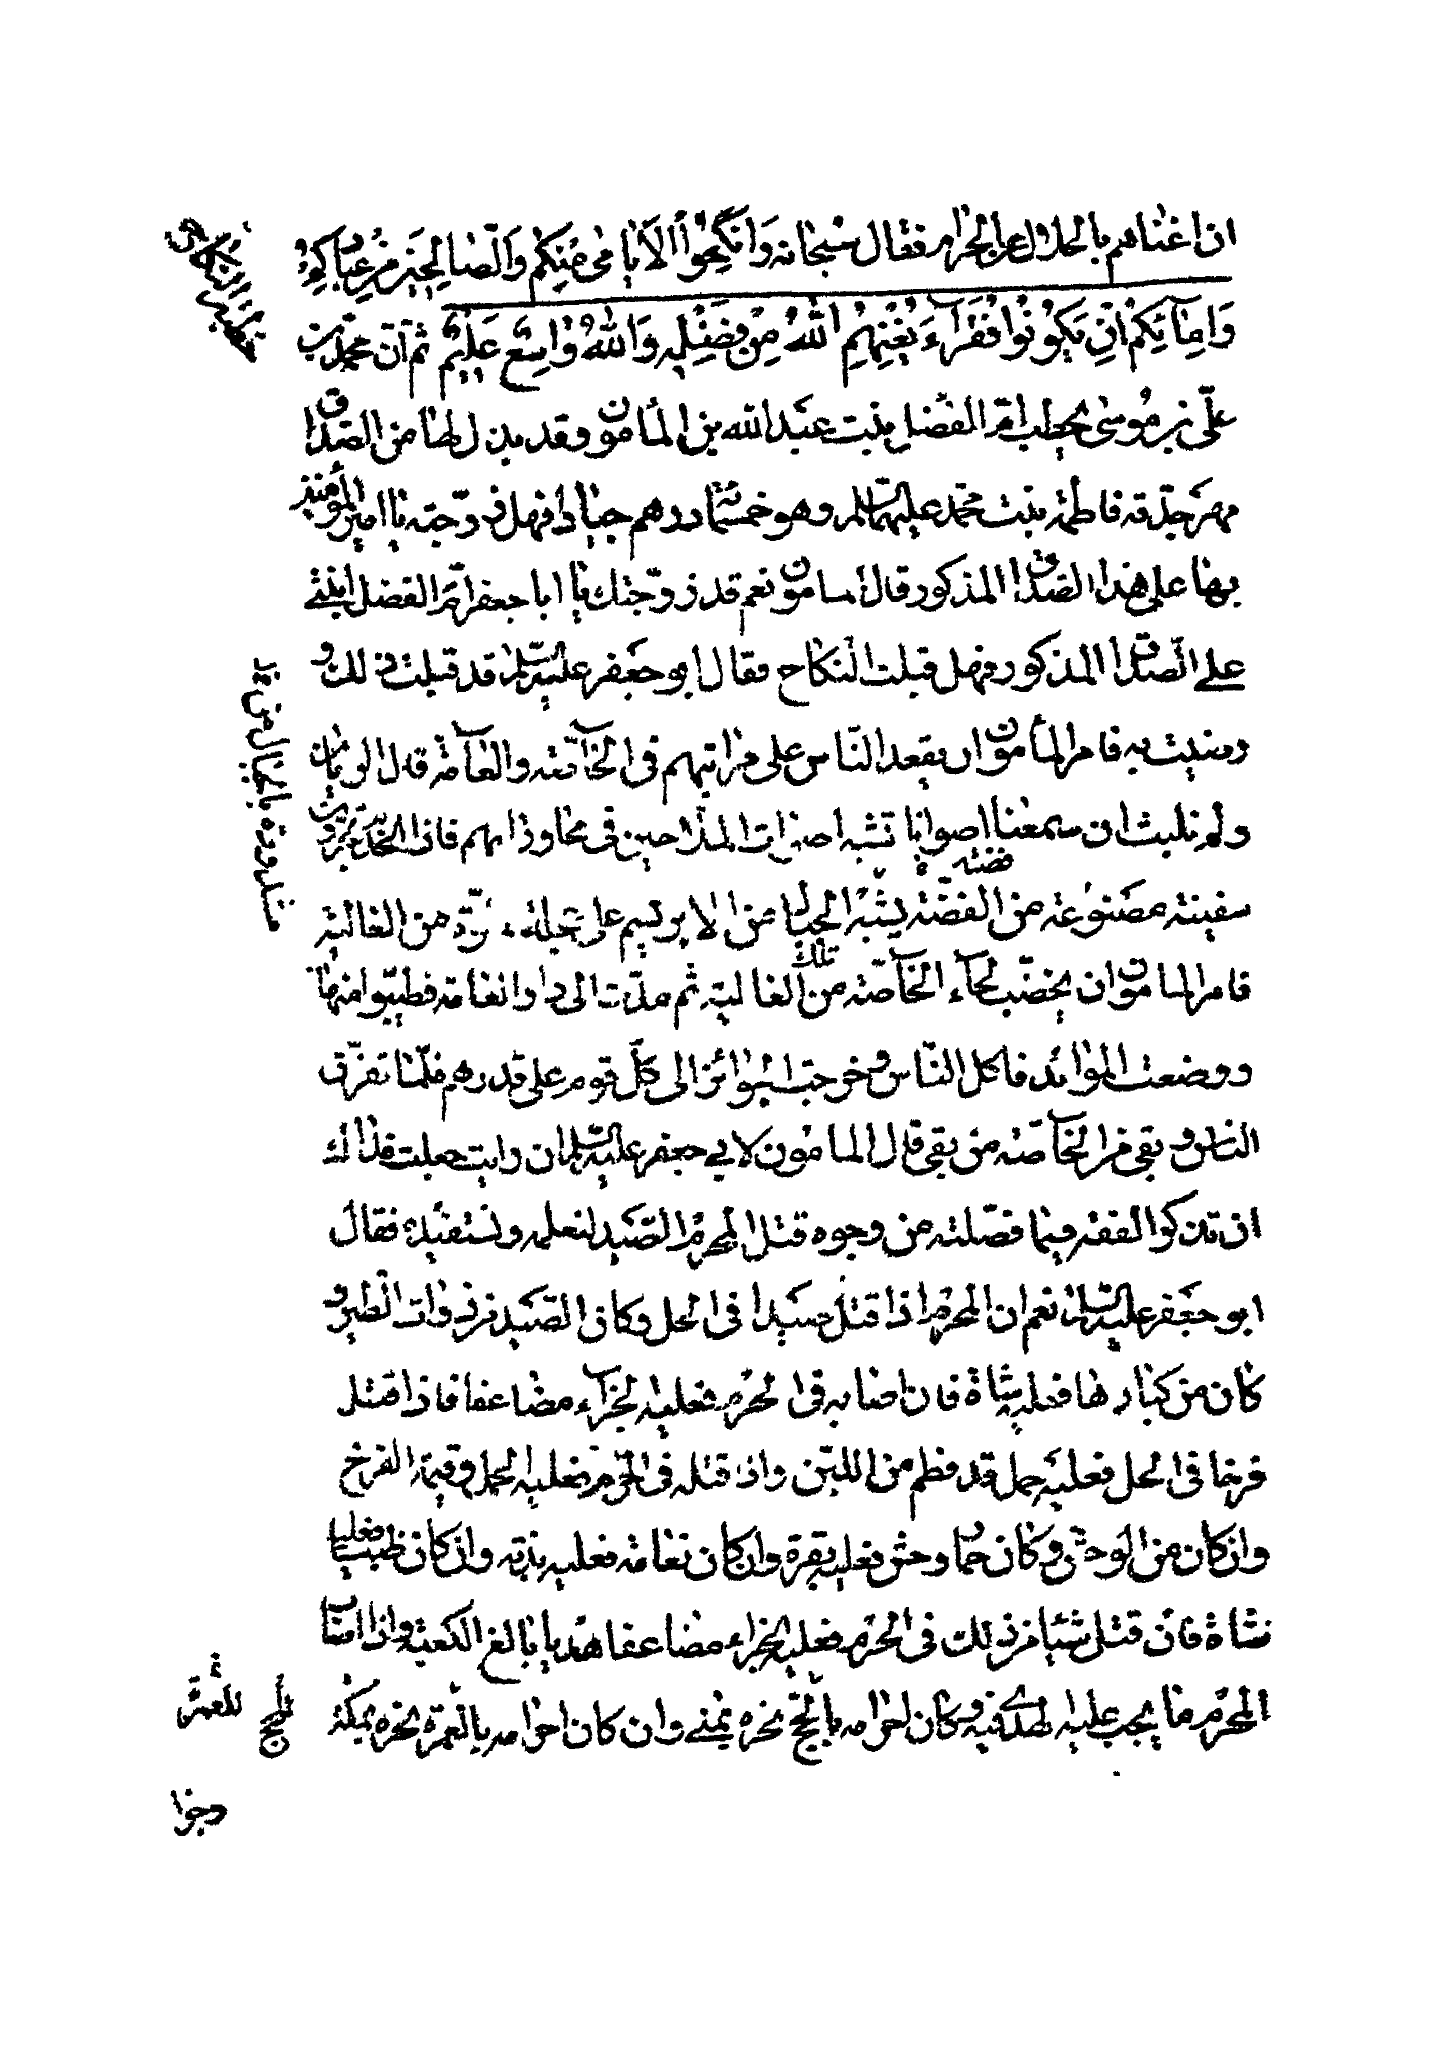 ان اغناهم بالحلال عن الحرام فقال سبحانه وَانكِحُوا الْاَيَامٰى مِنْكُم وَالصَّالِحِينَ مِنْ عِبَادِكُمْ
وَاِمَائِكُمْ اِنْ يَكُونُوا فُقَرَآءَ يُغْنِهِمُ اللهُ مِنْ فَضْلِهِ وَاللهُ وَاسِعٌ عَلِيمٌ ثم ان محمد بن
علّى بن موسٰى يخطب امّ الفضل بنت عبدالله بن المأمون وقد بذل لها من الصداق
مهر جدّته فاطمة بنت محمّد عليهما السلام وهو خمسمائة درهم جيادا فهل زوّجته يا امير المؤمنين
بها على هذا الصداق المذكور قال المامون نعم قد زوّجتك يا ابا جعفر امّ الفضل ابنتى
على الصّداق المذكور فهل قبلت النكاح فقال ابو جعفر عليه السّلام قد قبلت ذلك و
رضيت به فامر المأمون ان يقعد النّاس على مراتبهم فى الخاصّة والعامّة قال الريان
ولم نلبث ان سمعنا اصواتا تشبه اصوات الملاحين فى محاوراتهم فاذا الخدم يجرّون
سفينة مصنوعة من الفضّة يشبه الحبال من الابريسم على عجلة من الغالية
فضة
فامر المامون ان يخضب لحاء الخاصّة من تلك الغالية ثم مدّت الى دار العامة فطيّبوا منها
ووضعت الموائد فاكل النّاس وخرجت الجوائز الى كلّ قوم على قدرهم فلمّا تفرّق
الناس وبقى من الخاصّة من بقى قال المامون لابي جعفر عليه السلام ان رايت جعلت فداك
ان تذكر الفقه فيما فصّلته من وجوه قتل المحرم الصّيد لنعلمه ونستفيده فقال
ابو جعفر عليه السلام نعم ان المحرم اذا قتل صيدا فى الحل وكان الصّيد من ذوات الطير و
كان من كبارها فعليه شاة فان اصابه فى الحرم فعليه الجزآء مضاعفا فاذا قتل
فرخا فى الحل فعليه حمل قد فطم من اللبن واذا قتله فى الحرم فعليه الحمل وقيمة الفرخ
وان كان من الوحش وكان حمار وحش فعليه بقرة وان كان نعامة فعليه بدنة وان كان ظبيا فعليه
شاة فان قتل شيئا من ذلك فى الحرم فعليه الجزاء مضاعفا هديا بالغ الكعبة واذا اصاب
المحرم ما يجب عليه الهدى فيه وكان احرامه بالحج نحره بمنى وان كان احرامه بالعمرة نحره بمكة
خطبة النكاح
مشدودة بالحبال من
للحج
للعمرة
وجزا